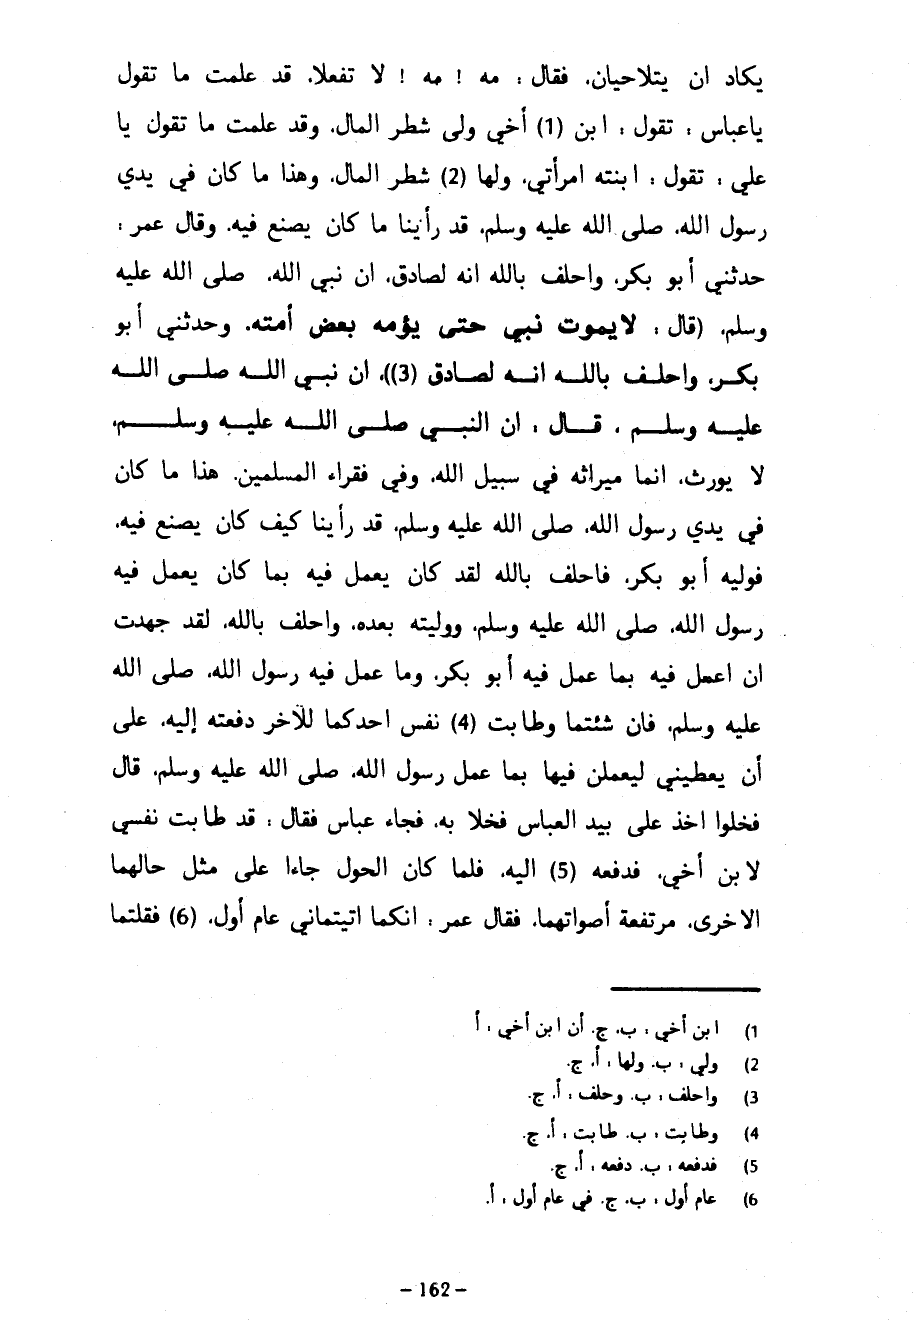 يكاد ان يتلاحيان، فقال : مه ! مه ! لا تفعلا، قد علمت ما تقول
ياعباس : تقول : ابن (1) أخي ولى شطر المال، وقد علمت ما تقول يا
علي : تقول : ابنته امرأتي، ولها (2) شطر المال، وهذا ما كان في يدي
رسول الله، صلى الله عليه وسلم، قد رأينا ما كان يصنع فيه، وقال عمر :
حدثني أبو بكر، واحلف بالله انه لصادق، ان نبي الله، صلى الله عليه
وسلم، (قال : لايموت نبي حتى يؤمه بعض أمته، وحدثني أبو
بكر، واحلف بالله انه لصادق (3))، ان نبي الله صلى الله
عليه وسلم ، قال : ان النبي صلى الله عليه وسلم،
لا يورث، انما ميراثه في سبيل الله، وفي فقراء المسلمين، هذا ما كان
في يدي رسول الله، صلى الله عليه وسلم، قد رأينا كيف كان يصنع فيه،
فوليه أبو بكر، فاحلف بالله لقد كان يعمل فيه بما كان يعمل فيه
رسول الله، صلى الله عليه وسلم، ووليته بعده، واحلف بالله، لقد جهدت
ان اعمل فيه بما عمل فيه أبو بكر، وما عمل فيه رسول الله، صلى الله
عليه وسلم، فان شئتما وطابت (4) نفس احدكما للآخر دفعته إليه، على
أن يعطيني ليعملن فيها بما عمل رسول الله، صلى الله عليه وسلم، قال
فخلوا اخذ على بيد العباس فخلا به، فجاء عباس فقال : قد طابت نفسي
لابن أخي، فدفعه (5) اليه، فلما كان الحول جاءا على مثل حالهما
الاخرى، مرتفعة أصواتهما، فقال عمر : انكما اتيتماني عام أول، (6) فقلتما
1) ابن أخي : ب، ج. أن ابن أخي : أ
2) ولي : ب. ولها : أ، ج.
3) واحلف : ب. وحلف : أ، ج.
4) وطابت : ب. طابت : أ، ج.
5) فدفعه : ب. دفعه : أ، ج.
6) عام أول : ب، ج. في عام أول : أ.
- 162 -